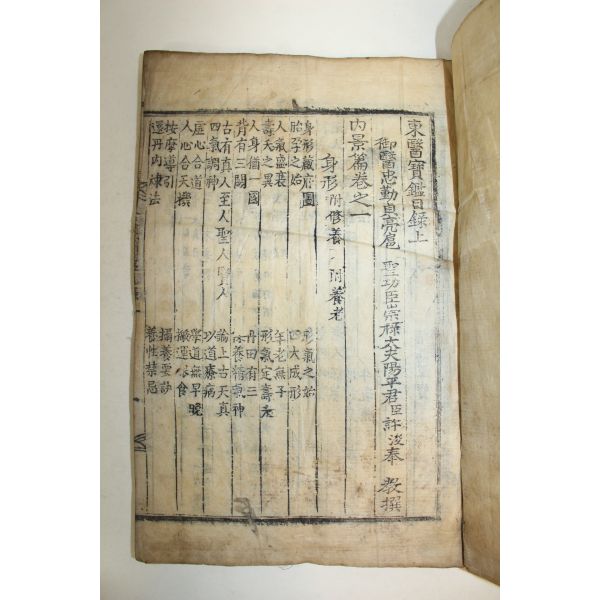 東醫寶鑑目錄上
御醫忠勤貞亮扈 聖功臣崇祿大夫陽平君臣許浚奉 敎撰
內景篇卷之一
身形 附修養 附養老
身形藏府圖 形氣之始
胎孕之始 四大成形
人氣盛衰 年老無子
壽夭之異 形氣定壽夭
人身猶一國 丹田有三
背有三關 保養精氣神
古有真人至人聖人賢人 論上古天真
四氣調神 以道療病
虛心合道 學道無早晚
人心合天機 搬運服食
按摩導引 攝養要訣
還丹內煉法 養性禁忌